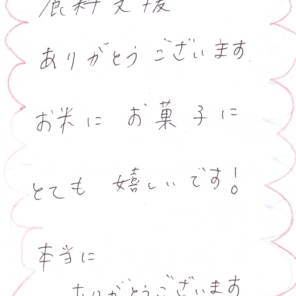 食料支援
ありがとうございます
お米に お菓子に
とても 嬉しいです!
本当に
ありがとうございます